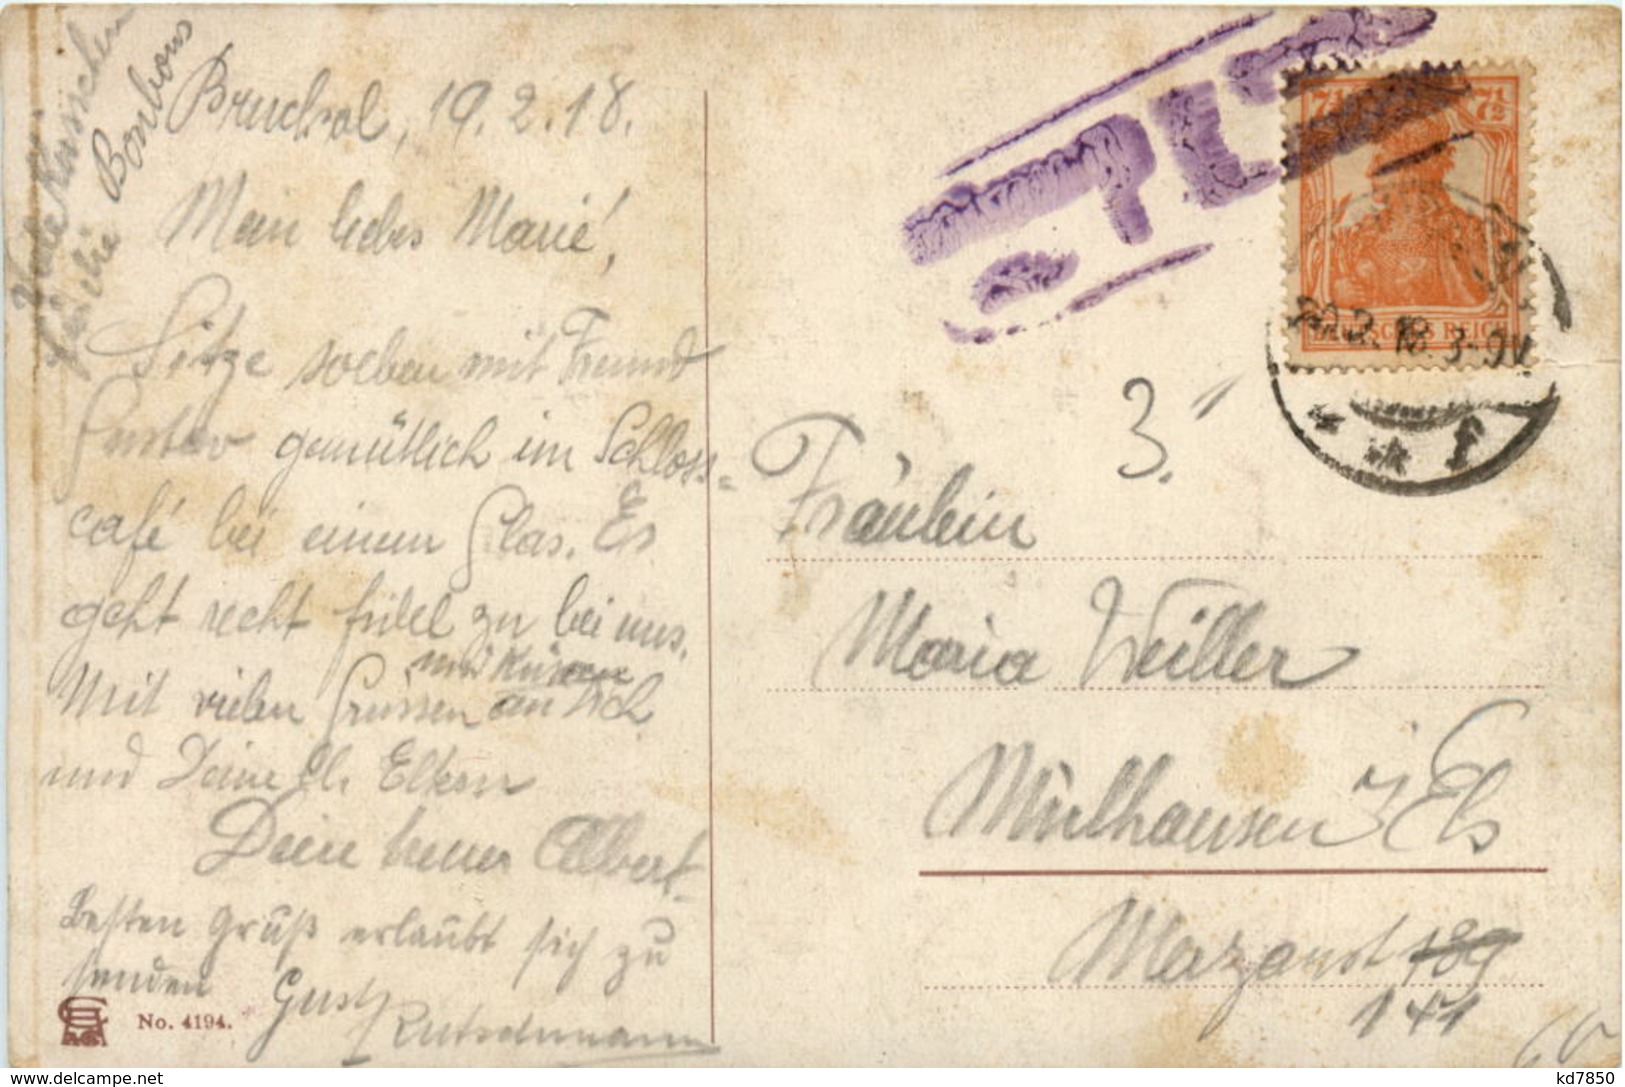 Bruchsal, 19.2.18.
Mein liebes Marie!
Sitze soeben mit Freund
Gustav gemütlich im Schloss=
café bei einem Glas. Es
geht recht fidel zu bei uns.
Mit vielen Grüssen und Küssen an Dich
und Deine lb. Eltern
Dein treuer Albert.
Besten Gruß erlaubt sich zu
senden Gust
Bonbons
No. 4194.
7½ 7½
DEUTSCHES REICH
18. 3-9V
* * f
3.
Fräulein
Maria Weiller
Mülhausen i/Els
141
kd7850